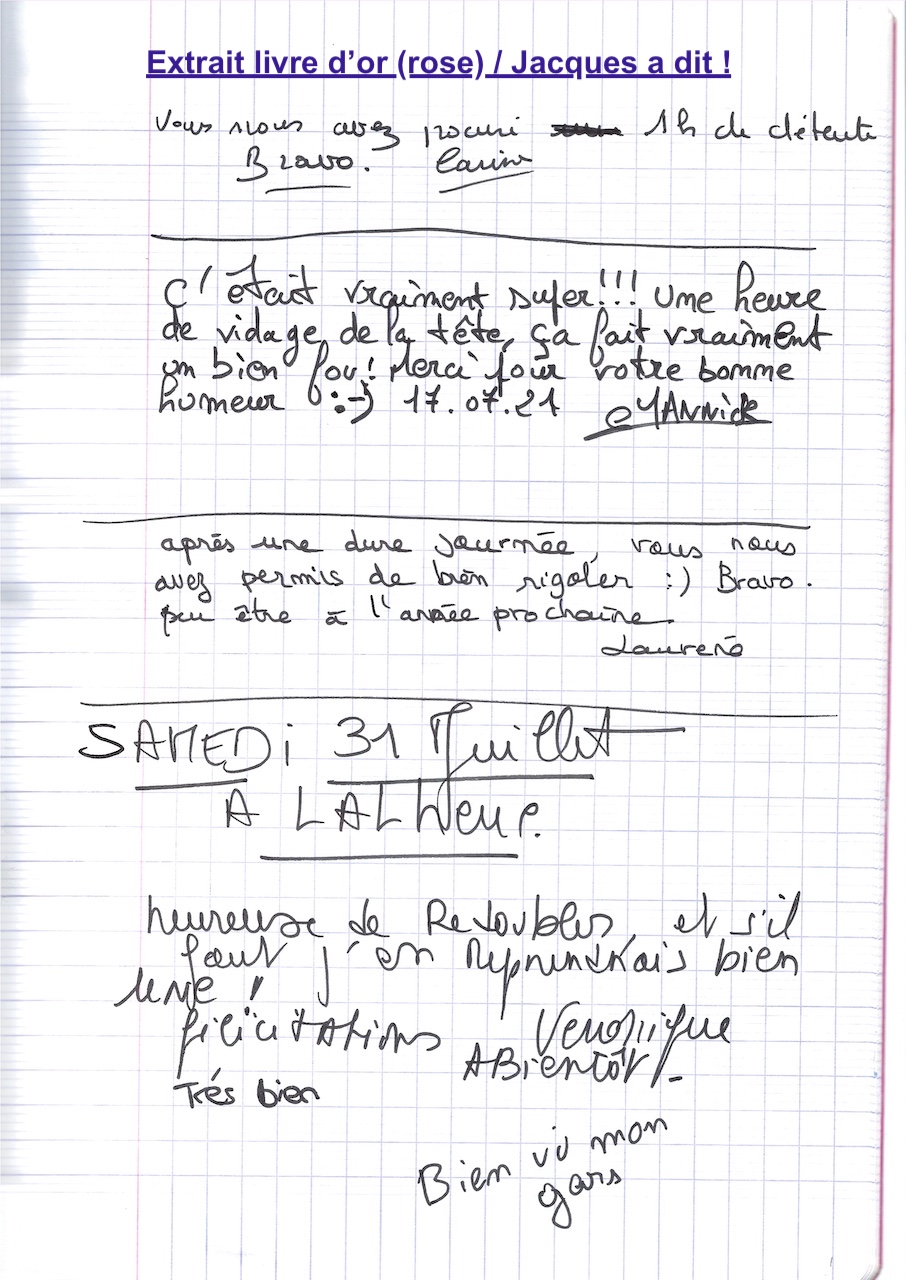 Extrait livre d'or (rose) / Jacques a dit !
Vous nous avez procuré 1h de détente
Bravo. Carine
C'était vraiment super!!! Une heure
de vidage de la tête, ça fait vraiment
un bien fou! Merci pour votre bonne
humeur :-) 17.07.21 YANNick
après une dure journée, vous nous
avez permis de bien rigoler :) Bravo.
peu être à l'année prochaine.
SAMEDi 31 Juillet
A LALHeue.
heureuse de Redoubler, et s'il
faut j'en Reprendrais bien
UNE !
félicitations Veronique
A Bientôt !
Trés bien
Bien vu mon
gars